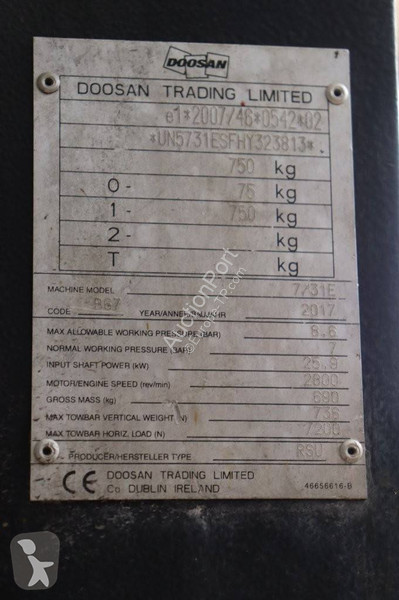 DOOSAN
DOOSAN TRADING LIMITED
e1*2007/46*0542*02
*UN5731ESFHY323813*
750 kg
0- 75 kg
1- 750 kg
2- kg
T kg
MACHINE MODEL 7/31E
CODE YEAR/ANNEE/BAUJAHR 2017
MAX ALLOWABLE WORKING PRESSURE (BAR) 8.6
NORMAL WORKING PRESSURE (BAR) 7
INPUT SHAFT POWER (kW) 25.9
MOTOR/ENGINE SPEED (rev/min)
GROSS MASS (kg)
MAX TOWBAR VERTICAL WEIGHT (N) 736
MAX TOWBAR HORIZ. LOAD (N) 7200
PRODUCER/HERSTELLER TYPE RSU
CE DOOSAN TRADING LIMITED
Co DUBLIN IRELAND
46656616-B
AuctionPort